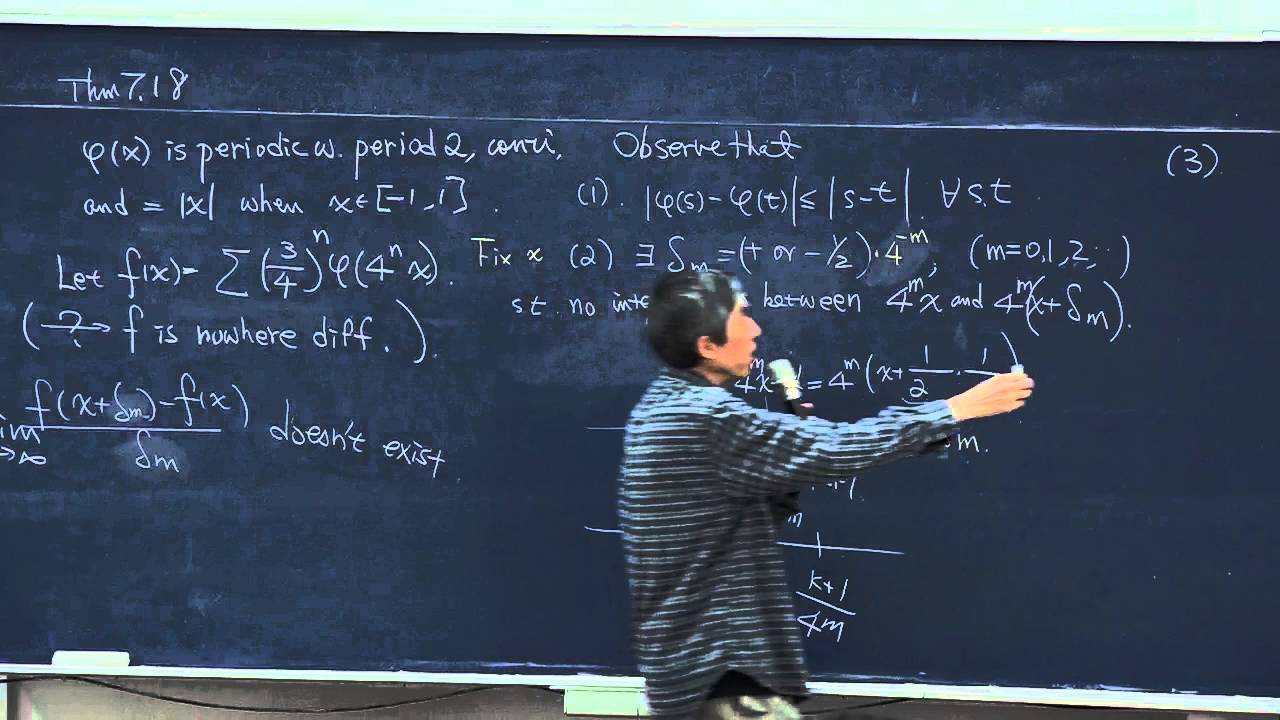 Thm 7.18
φ(x) is periodic w. period 2, conti,
and = |x| when x∈[-1,1].
Let f(x)= ∑(3/4)^n φ(4^n x).
(?→ f is nowhere diff.).
f(x+δm)-f(x) / δm doesn't exist
Observe that
(1). |φ(s)-φ(t)|≤|s-t|. ∀s,t
Fix x (2) ∃ δm=(+ or -1/2)·4^-m, (m=0,1,2,..)
s.t. no between 4^m x and 4^m(x+δm).
= 4^m(x+ 1/2 · 1
m.
m
k+1 / 4m
(3)